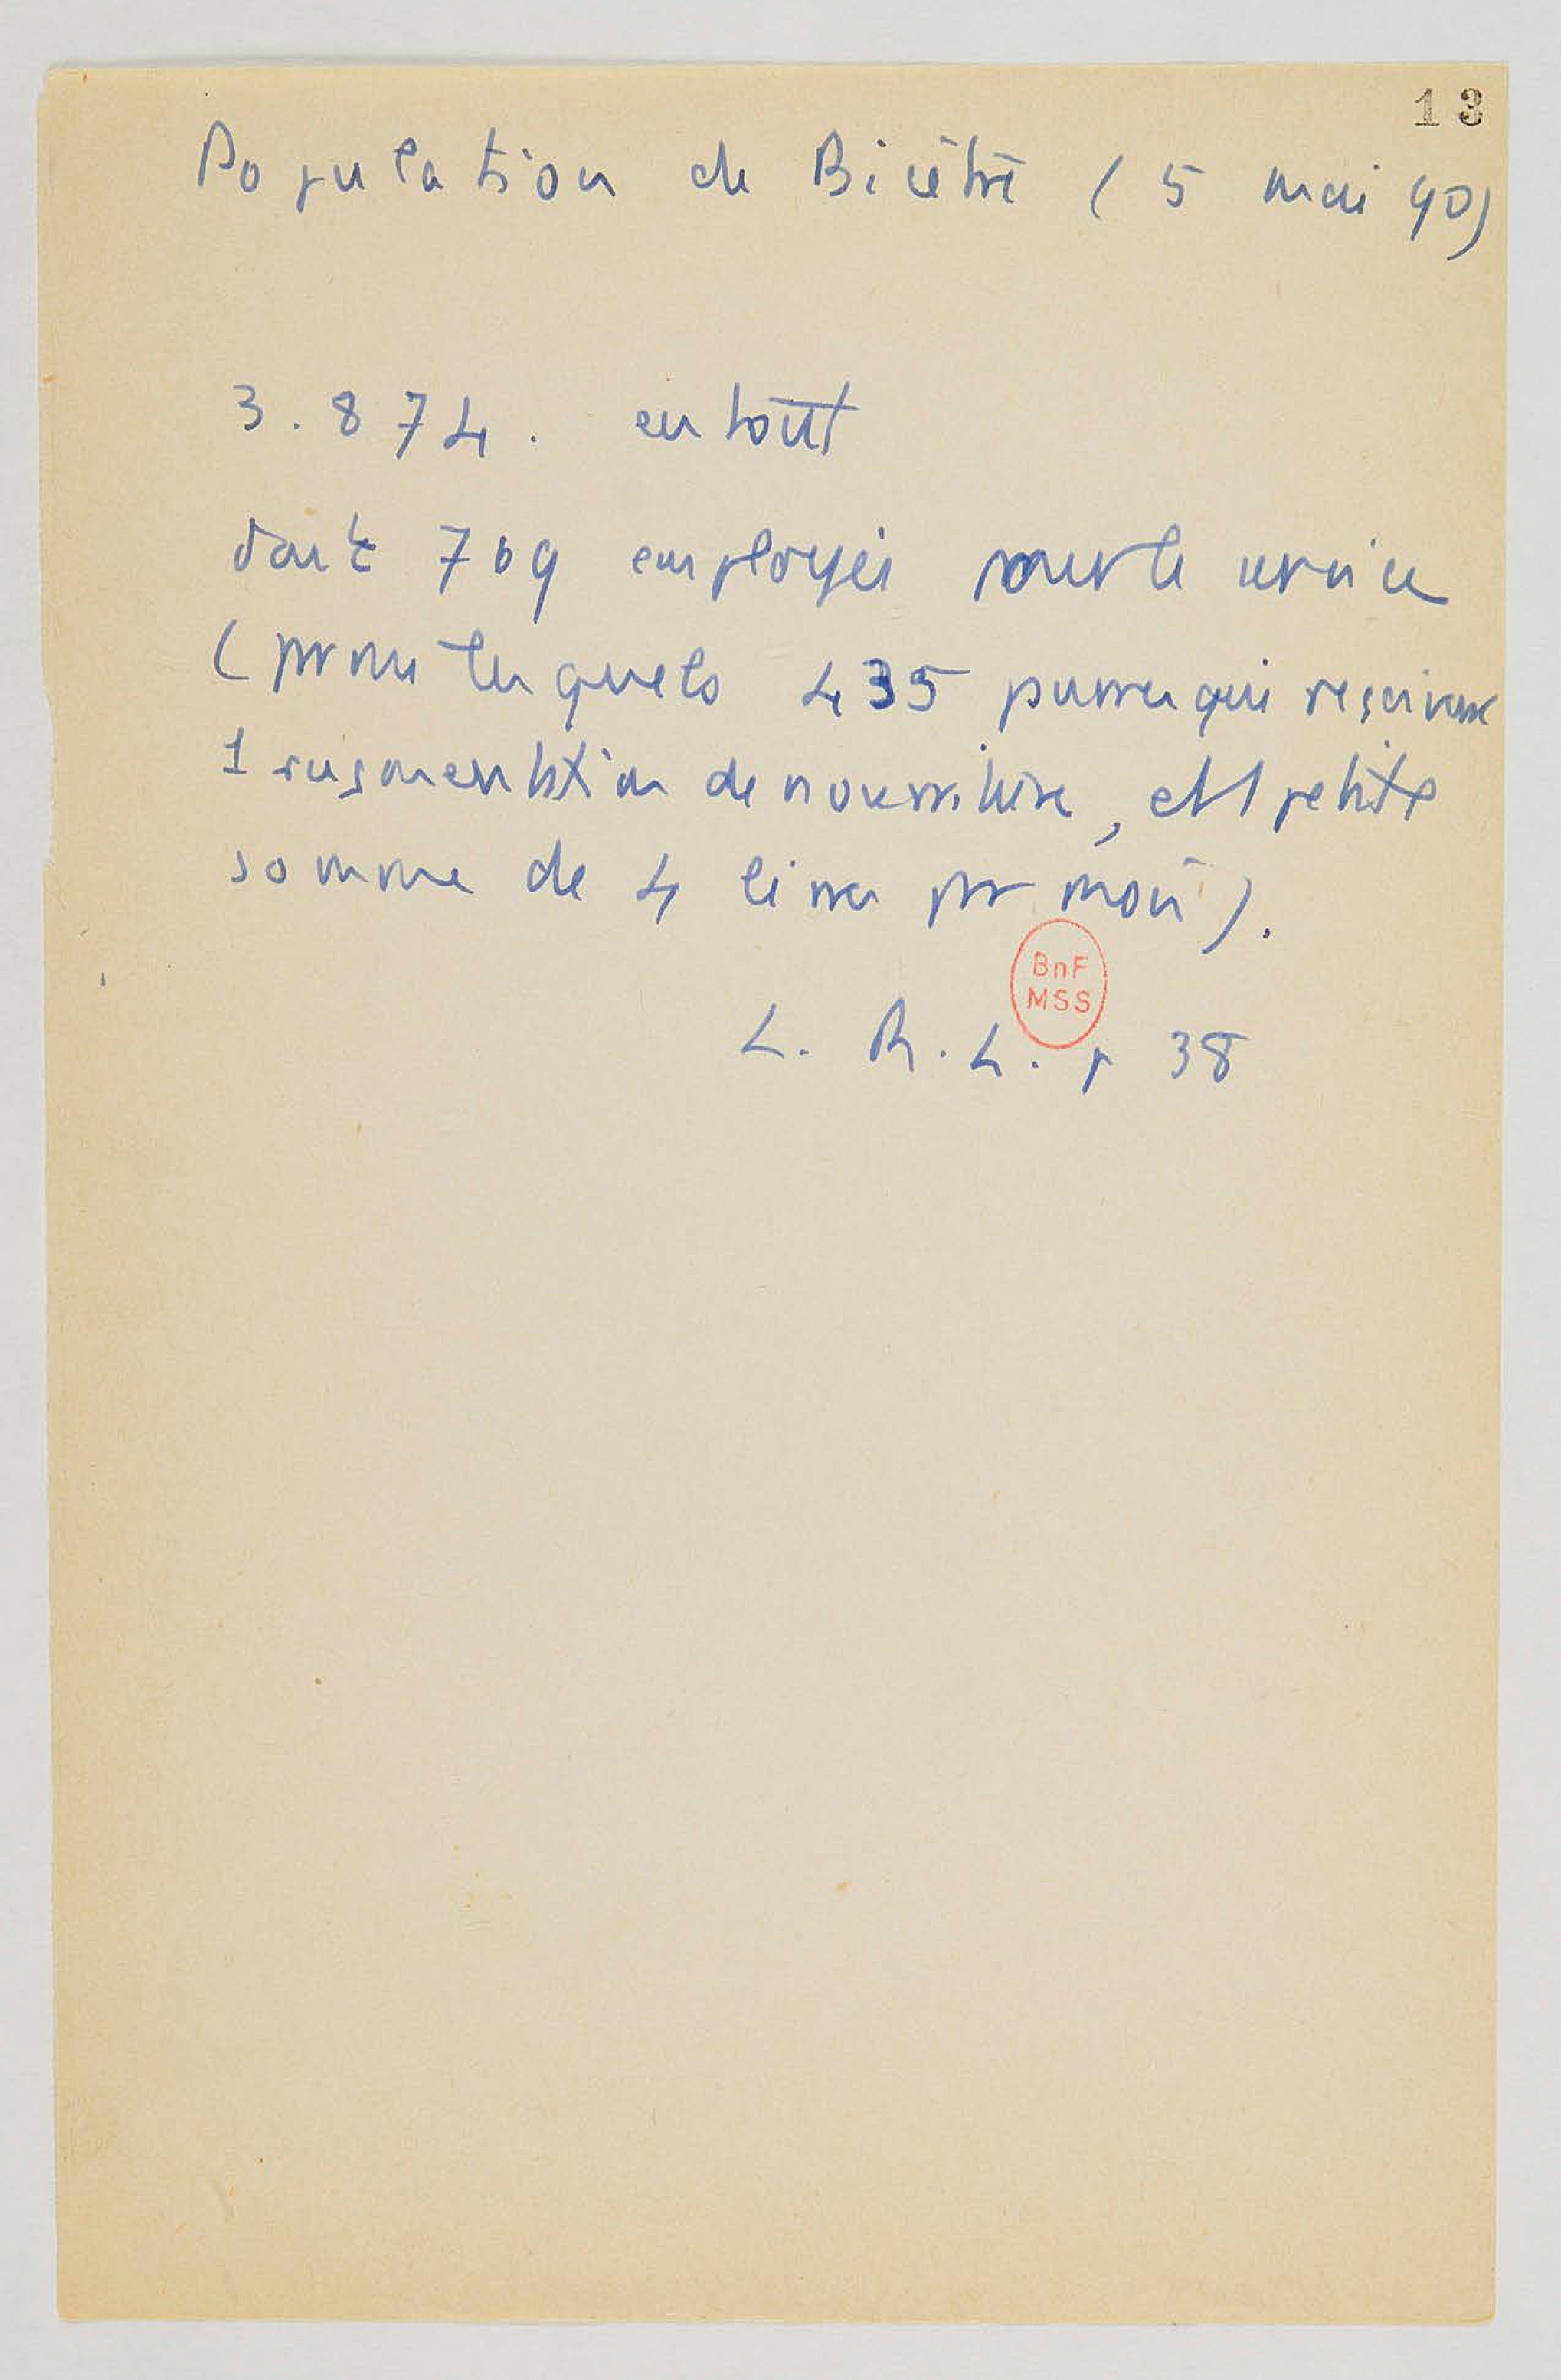 13
Population de Bicêtre (5 mai 90)
3.874. en tout
dont 709 employés pour le service
(parmi lesquels 435 pauvres qui reçoivent
1 augmentation de nourriture, et 1 petite
somme de 4 livres par mois).
BnF
MSS
L. R. L. p 38